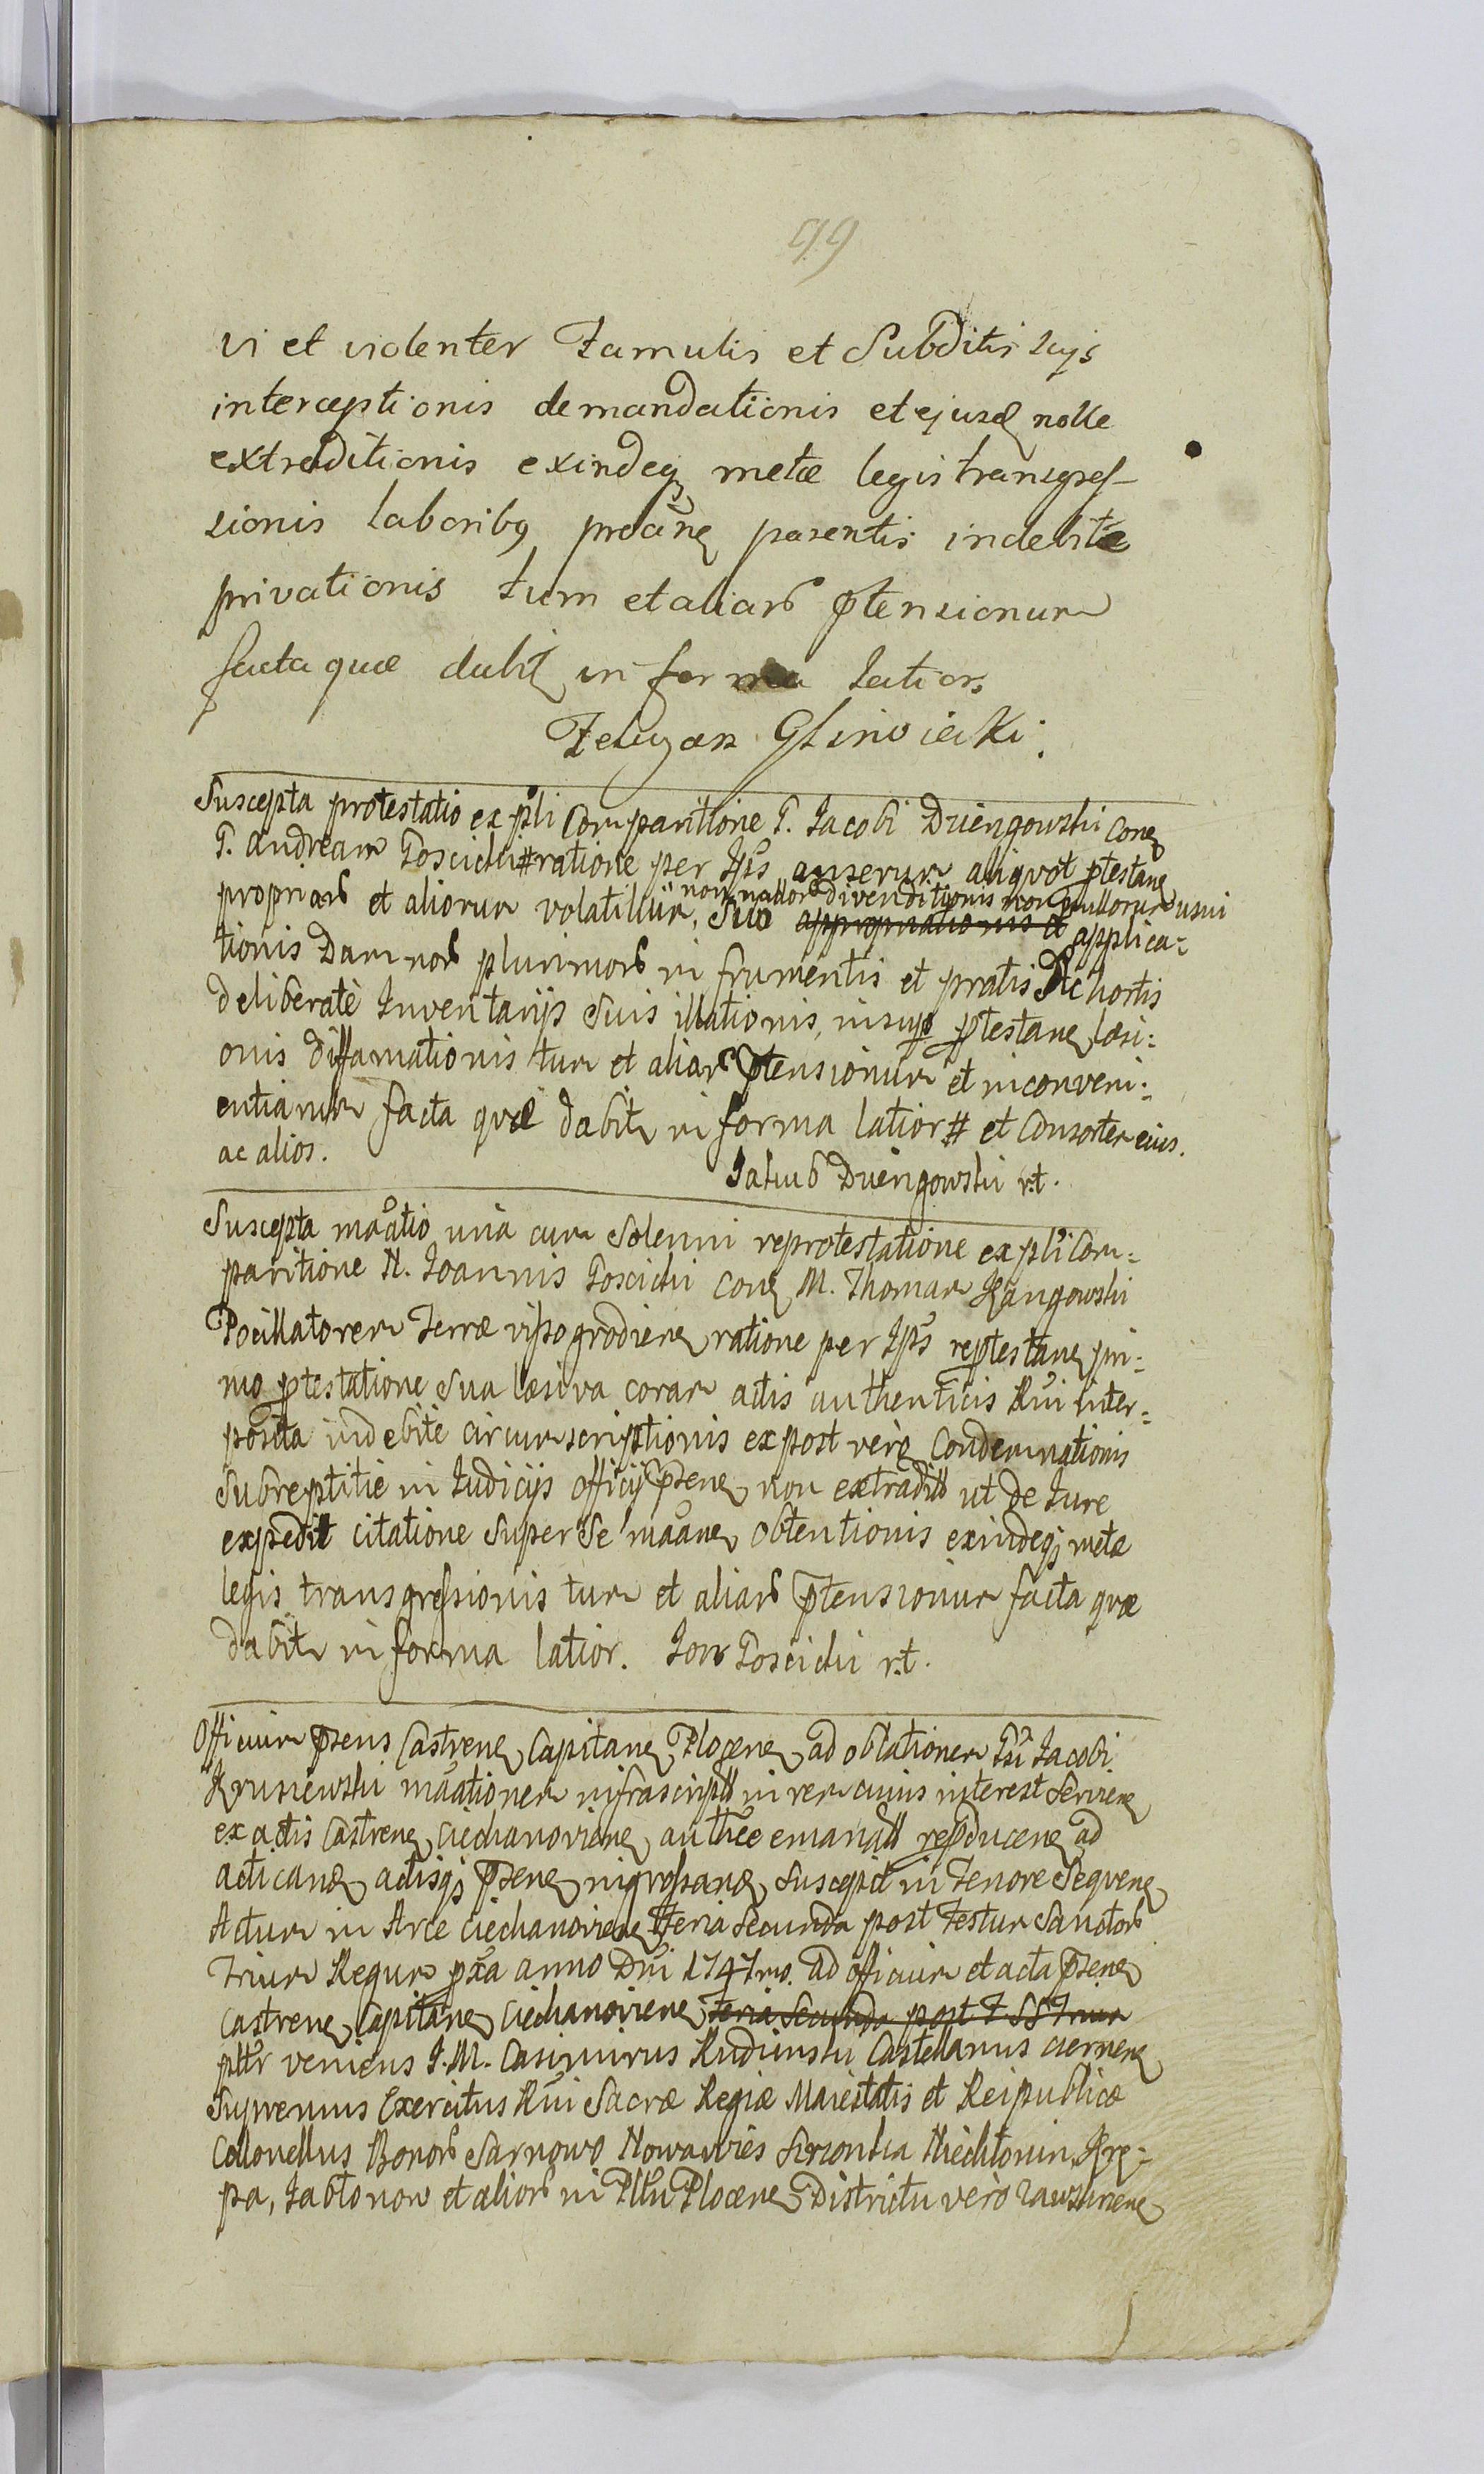 99
vi et violenter Famulis et Subditis suis
interceptionis demandationis et ejusd nolle
extraditionis exindeq metæ legis transgres-
sionis laboribq parentis indebitæ
privationis tum et aliarb ptensionum
facta quæ dabit in forma latior.
Felicyan Glinoiecki.
Suscepta protestatio ex psli Comparitione G. Jacobi Dzięgowski cone
G. Andream Goscicki # ratione per Ips anserum aliqvot ptestane
propriarb et aliorum volatilium, nonnullorb divenditionis non nullorum usui
suo appropriationis et applica=
tionis Damnorb plurimorb in frumentis et pratis Ac hortis
deliberatè Inventarijs suis illationis, insup ptestane læsi=
onis diffamationis tum et aliarb ptensionum et inconveni=
entiarum facta quæ dabitr in forma latior # et Consortem eius.
ac alios.
Jakub Dzięgowski r.t.
Suscepta maatio una cum Solenni reprotestatione ex psli Com=
paritione N. Joannis Goscicki cone M. Thomam Kangowski
Pocillatorem Terræ vissogrodiene ratione per Ips reptestane pri=
mo ptestatione sua læsiva coram actis authenticis Rni inter=
posita indebitè circumscriptionis ex post verò Condemnationis
Subreptitiè in Judicijs officij psene non extradita ut de Jure
expedit citatione super se maane obtentionis exindeq metæ
legis transgressionis tum et aliarb ptensionum facta quæ
dabitr in forma latior. Jan Goscicki r.t.
Officium psens Castrene Capitane Plocene ad oblationem Gsi Jacobi
Kruniewski maationem infrascriptam in rem cuius interest serviene
ex actis Castrene Ciechanoviene authce emanatam reproducene ad
acticand actisq psene ingrossand suscepit in Tenore Seqvene
Actum in Arce Ciechanoviene Feria Secunda post Festum Sanctorb
Trium Regum pxa anno Dni 1747mo. ad officium et acta psene
Castrene Capitane Ciechanoviene Feria Secunda post F SS Trium
pltr veniens J.M. Casimirus Rudzinski Castellanus Czernene
Supremus Exercitus Rni Sacræ Regiæ Maiestatis et Reipublicæ
Collonellus Bonorb Sarnowo Nowawies Krępa, Jabłonow et aliorb in Pltu Plocene Districtu verò Zawskrzene